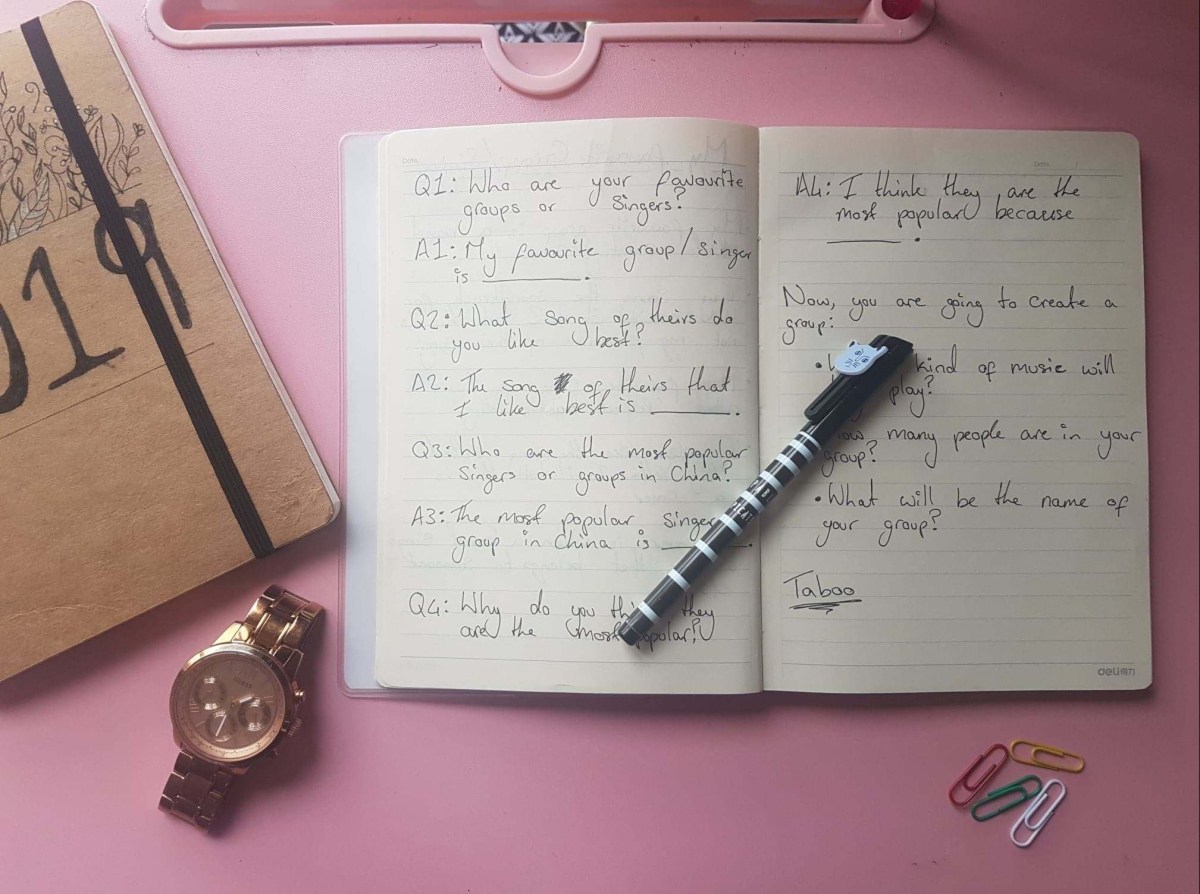 2019
Date
Q1: Who are your favourite
groups or singers?
A1: My favourite group/singer
is ______.
Q2: What song of theirs do
you like best?
A2: The song of theirs that
I like best is ______.
Q3: Who are the most popular
singers or groups in China?
A3: The most popular singer
group in China is ______.
Q4: Why do you they
are the most popular?
Date
A4: I think they are the
most popular because
______.
Now, you are going to create a
group:
• kind of music will
play?
many people are in your
group?
• What will be the name of
your group?
Taboo
deli
GUESS